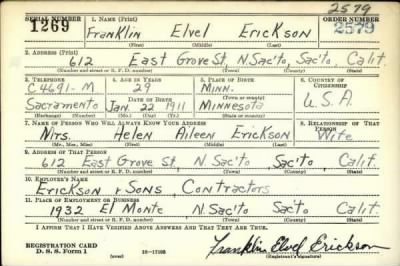 2579
SERIAL NUMBER 1. NAME (Print) ORDER NUMBER
1269 Franklin Elvel Erickson 2579
(First) (Middle) (Last)
2. ADDRESS (Print)
612 East Grove St, N. Sac'to, Sac'to, Calif.
(Number and street or R. F. D. number) (Town) (County) (State)
3. TELEPHONE 4. AGE IN YEARS 5. PLACE OF BIRTH 6. COUNTRY OF CITIZENSHIP
C 4691-M 29 Minn.
Sacramento DATE OF BIRTH Jan 22 1911 Minnesota U.S.A.
(Exchange) (Number) (Mo.) (Day) (Yr.) (State or country)
7. NAME OF PERSON WHO WILL ALWAYS KNOW YOUR ADDRESS 8. RELATIONSHIP OF THAT PERSON
Mrs. Helen Aileen Erickson Wife
(Mr., Mrs., Miss) (First) (Middle) (Last)
9. ADDRESS OF THAT PERSON
612 East Grove St, N Sac'to, Sac'to, Calif.
(Number and street or R. F. D. number) (Town) (County) (State)
10. EMPLOYER'S NAME
Erickson & Sons Contractors
11. PLACE OF EMPLOYMENT OR BUSINESS
1932 El Monte N. Sac'to Sac'to Calif.
(Number and street or R. F. D. number) (Town) (County) (State)
I AFFIRM THAT I HAVE VERIFIED ABOVE ANSWERS AND THAT THEY ARE TRUE.
REGISTRATION CARD
D. S. S. Form 1 (over) Franklin Elvel Erickson
(Registrant's signature)